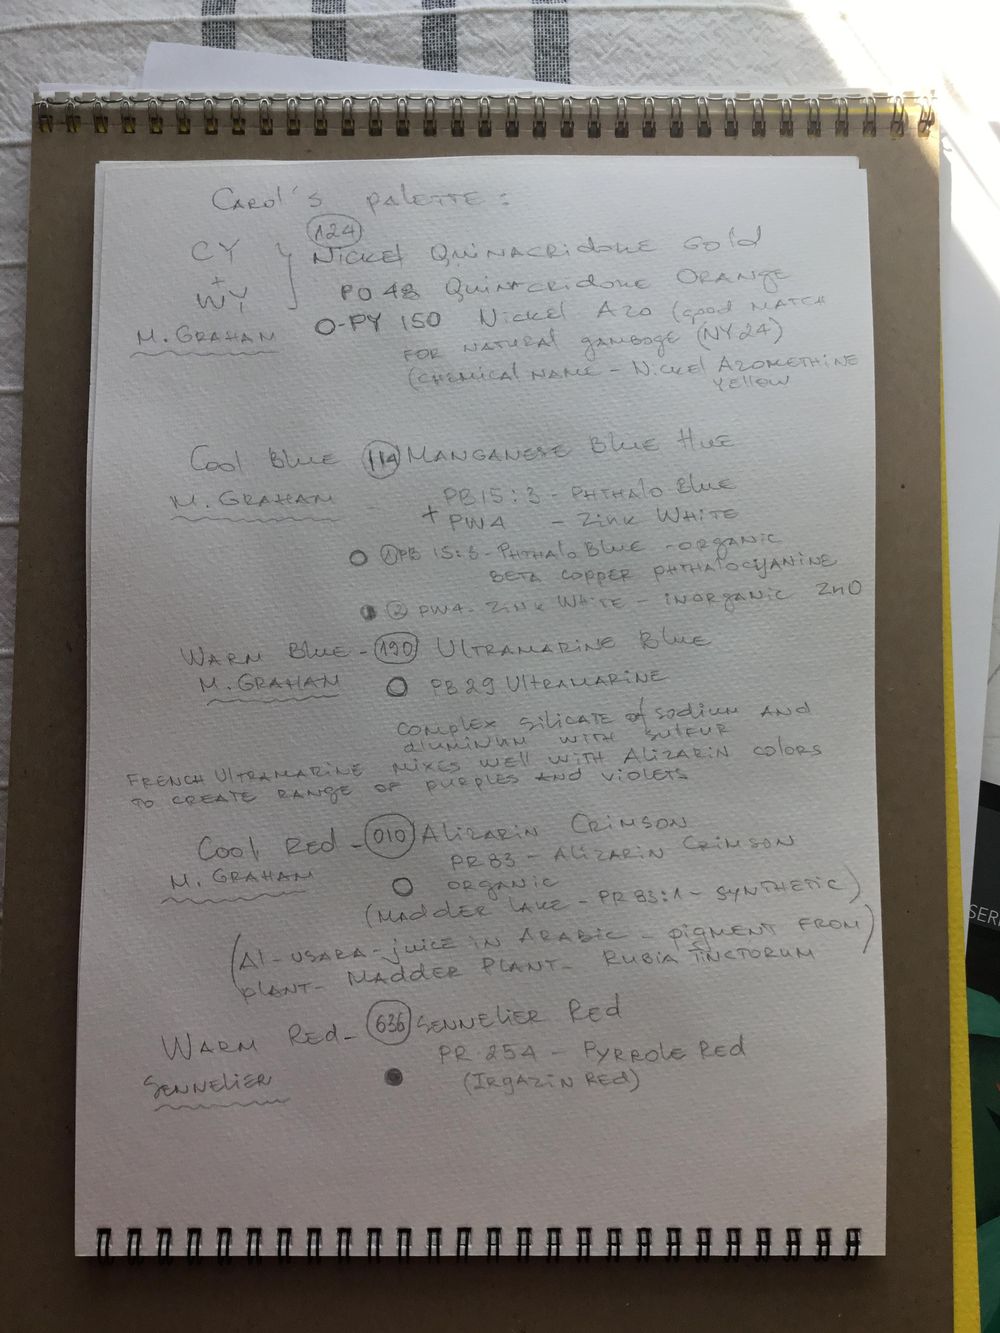 Carol's palette:
124
CY } Nickel Quinacridone Gold
+
WY PO 48 Quinacridone Orange
M. Graham O-PY 150 Nickel Azo (good match
for natural gamboge (NY24)
(chemical name - Nickel Azomethine
yellow
Cool Blue 114 Manganese Blue Hue
M. Graham PB15:3 - Phthalo Blue
+ PW4 - Zink White
① PB 15:3 - Phthalo Blue - organic
Beta copper phthalocyanine
② PW4 - Zink White - inorganic ZnO
Warm Blue - 190 Ultramarine Blue
M. Graham PB29 Ultramarine
complex silicate of sodium and
aluminum with sulfur
French Ultramarine mixes well with Alizarin colors
to create range of purples and violets
Cool Red - 010 Alizarin Crimson
PR83 - Alizarin Crimson
M. Graham organic
(Madder Lake - PR83:1 - synthetic)
(Al-usara - juice in Arabic - pigment from)
plant - Madder Plant - Rubia Tinctorum
Warm Red - 636 Sennelier Red
PR 254 - Pyrrole Red
Sennelier (Irgazin Red)
SERI